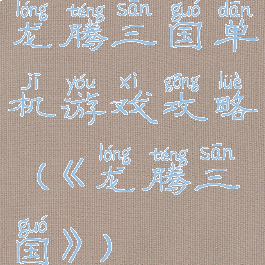 lóng téng sān guó dān
龙腾三国单
jī yóu xì gōng lüè
机游戏攻略
lóng téng sān
(《龙腾三
guó
国》)